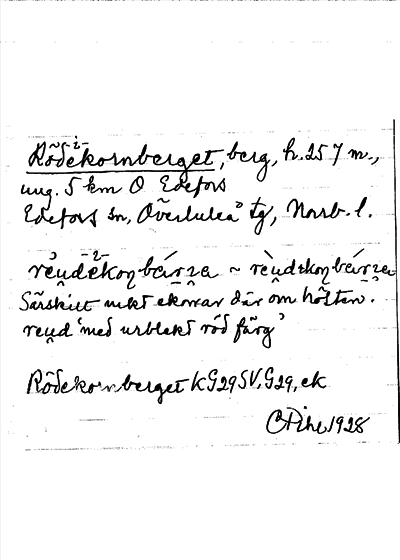 Rödekornberget, berg, h. 257 m.,
ung. 5 km O Edefors
Edefors sn, Överluleå tg, Norrb. l.
Särskilt mkt ekorrar där om hösten.
'med urblekt röd färg'
Rödekornberget KG29SV. G29, ek
1928